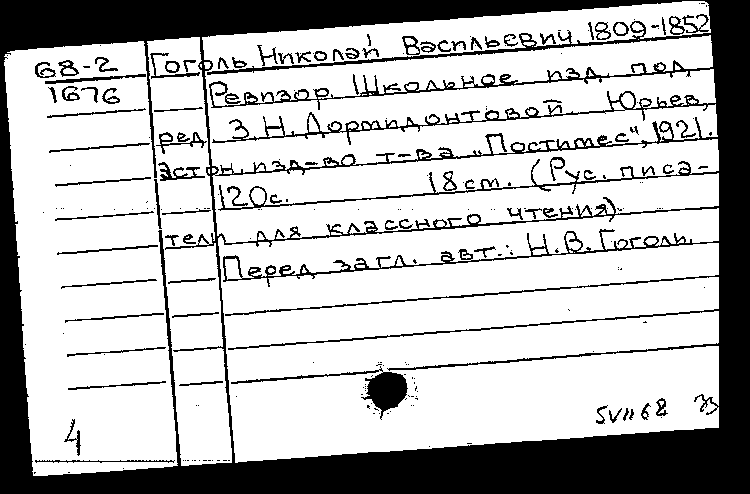 68-2 Гоголь, Николай Васильевич. 1809-1852
1676 Ревизор. Школьное изд. под
ред. З.Н. Дормидонтовой. Юрьев,
Эстон. изд-во т-ва „Постимес“, 1921.
120с. 18 см. (Рус. писа-
тели для классного чтения).
Перед загл. авт.: Н.В. Гоголь.
4
5VII68